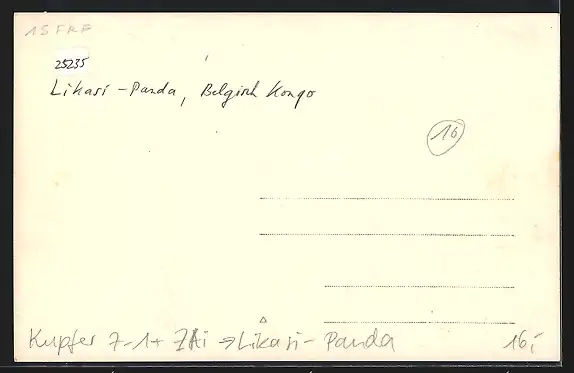 15 FRF
25235
Likasi - Panda, Belgisch Kongo
16
Kupfer 7-1+ ZAi → Likasi - Panda 16,-